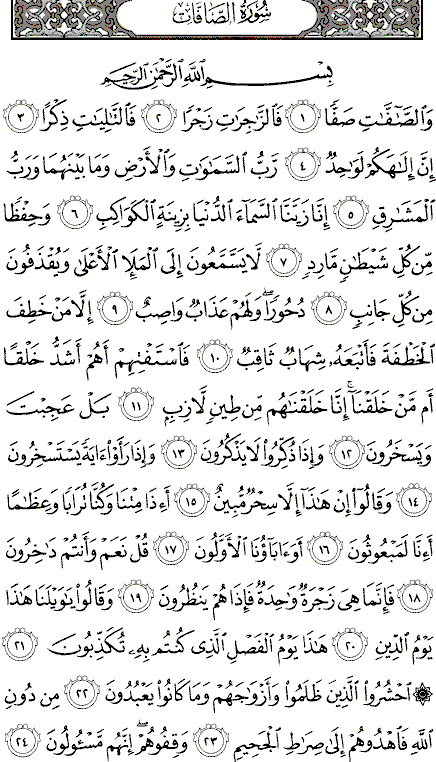 سُورَةُ الصَّافَّاتِ
بِسْمِ ٱللَّهِ ٱلرَّحْمَٰنِ ٱلرَّحِيمِ
وَٱلصَّٰٓفَّٰتِ صَفًّا ١ فَٱلزَّٰجِرَٰتِ زَجْرًا ٢ فَٱلتَّٰلِيَٰتِ ذِكْرًا ٣
إِنَّ إِلَٰهَكُمْ لَوَٰحِدٌ ٤ رَّبُّ ٱلسَّمَٰوَٰتِ وَٱلْأَرْضِ وَمَا بَيْنَهُمَا وَرَبُّ
ٱلْمَشَٰرِقِ ٥ إِنَّا زَيَّنَّا ٱلسَّمَآءَ ٱلدُّنْيَا بِزِينَةٍ ٱلْكَوَاكِبِ ٦ وَحِفْظًا
مِّن كُلِّ شَيْطَٰنٍ مَّارِدٍ ٧ لَّا يَسَّمَّعُونَ إِلَى ٱلْمَلَإِ ٱلْأَعْلَىٰ وَيُقْذَفُونَ
مِن كُلِّ جَانِبٍ ٨ دُحُورًا ۖ وَلَهُمْ عَذَابٌ وَاصِبٌ ٩ إِلَّا مَنْ خَطِفَ
ٱلْخَطْفَةَ فَأَتْبَعَهُۥ شِهَابٌ ثَاقِبٌ ١٠ فَٱسْتَفْتِهِمْ أَهُمْ أَشَدُّ خَلْقًا
أَم مَّنْ خَلَقْنَآ ۚ إِنَّا خَلَقْنَٰهُم مِّن طِينٍ لَّازِبٍۭ ١١ بَلْ عَجِبْتَ
وَيَسْخَرُونَ ١٢ وَإِذَا ذُكِّرُوا۟ لَا يَذْكُرُونَ ١٣ وَإِذَا رَأَوْا۟ ءَايَةً يَسْتَسْخِرُونَ
١٤ وَقَالُوٓا۟ إِنْ هَٰذَآ إِلَّا سِحْرٌ مُّبِينٌ ١٥ أَءِذَا مِتْنَا وَكُنَّا تُرَابًا وَعِظَٰمًا
أَءِنَّا لَمَبْعُوثُونَ ١٦ أَوَءَابَآؤُنَا ٱلْأَوَّلُونَ ١٧ قُلْ نَعَمْ وَأَنتُمْ دَٰخِرُونَ
١٨ فَإِنَّمَا هِىَ زَجْرَةٌ وَٰحِدَةٌ فَإِذَا هُمْ يَنظُرُونَ ١٩ وَقَالُوا۟ يَٰوَيْلَنَا هَٰذَا
يَوْمُ ٱلدِّينِ ٢٠ هَٰذَا يَوْمُ ٱلْفَصْلِ ٱلَّذِى كُنتُم بِهِۦ تُكَذِّبُونَ ٢١
۞ ٱحْشُرُوا۟ ٱلَّذِينَ ظَلَمُوا۟ وَأَزْوَٰجَهُمْ وَمَا كَانُوا۟ يَعْبُدُونَ ٢٢ مِن دُونِ
ٱللَّهِ فَٱهْدُوهُمْ إِلَىٰ صِرَٰطِ ٱلْجَحِيمِ ٢٣ وَقِفُوهُمْ ۖ إِنَّهُم مَّسْـُٔولُونَ ٢٤